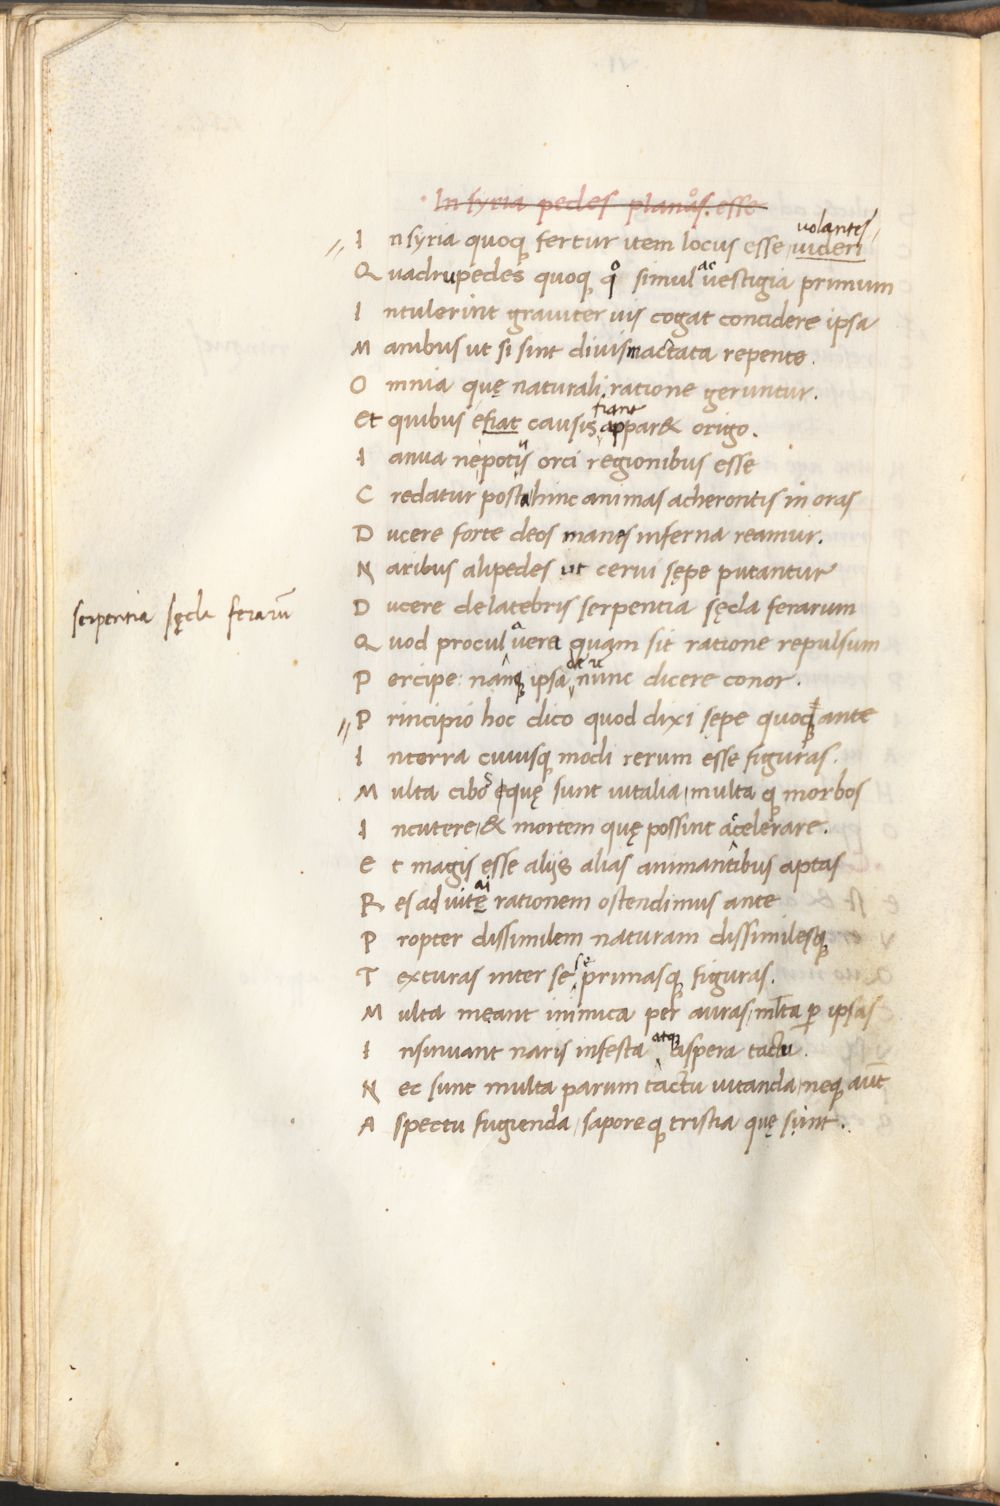 In syria pedes planas. esse
volantes
I n syria quoq fertur item locus esse uideri
Q uadrupedes quoq qo simul ac uestigia primum
I ntulerint grauiter uis cogat concidere ipsa
M anibus ut si sint diuis mactata repente.
O mnia quę naturali ratione geruntur.
fiant
Et quibus efiat causis appar& origo.
I anua ne potis orci regionibus esse
C redatur posta hinc animas acherontis in oras
D ucere forte deos manes inferna reamur.
N aribus alipedes ut cerui sępe putantur
D ucere de latebris serpentia sęcla ferarum
serpentia sęcla ferarū
Q uod procul a uera quam sit ratione repulsum
P ercipe: namq ipsa de re nunc dicere conor.
P rincipio hoc dico quod dixi sępe quoq ante
I n terra cuiusq modi rerum esse figuras.
M ulta cibo s equę sunt uitalia multa q morbos
I ncutere & mortem quę possint acelerare.
E t magis esse aliis alias animantibus aptas
R es ad uite ai rationem ostendimus ante
P ropter dissimilem naturam dissimilesq
T exturas inter se se primasq figuras.
M ulta meant inimica per auras, mlta p ipsas
I nsinuant naris infesta atq aspera tactu.
N ec sunt multa parum tactu uitanda neq aut
A spectu fugienda sapore q tristia quę sint.